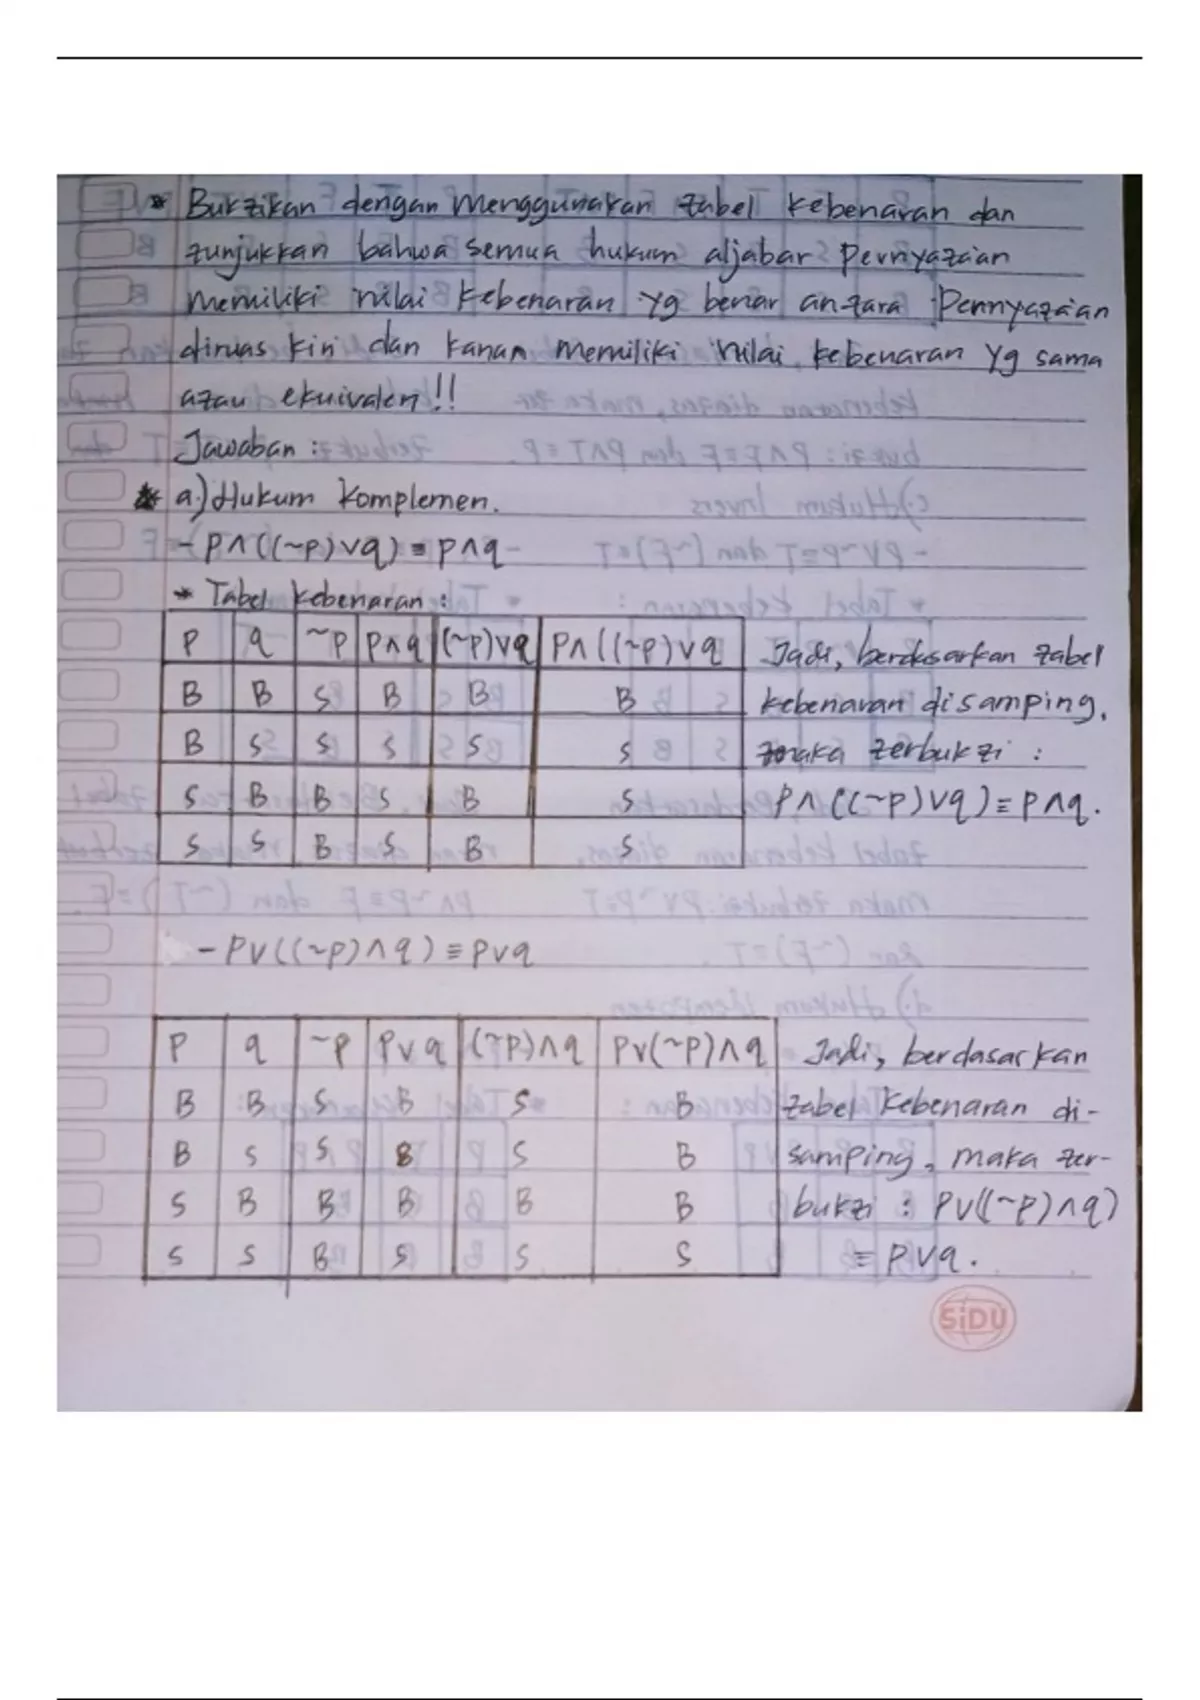 * Buktikan dengan menggunakan tabel kebenaran dan
tunjukkan bahwa semua hukum aljabar pernyataan
memiliki nilai kebenaran yg benar antara pernyataan
diruas kiri dan kanan memiliki nilai kebenaran yg sama
atau ekuivalen!!
Jawaban :
* a.) Hukum Komplemen.
- p∧((~p)∨q) ≡ p∧q
* Tabel kebenaran :
p q ~p p∧q (~p)∨q p∧((~p)∨q
B B S B B B
B S S S S S
S B B S B S
S S B S B S
Jadi, berdasarkan tabel
kebenaran disamping,
maka terbukti :
p∧((~p)∨q) ≡ p∧q.
- p∨((~p)∧q) ≡ p∨q
p q ~p p∨q (~p)∧q p∨(~p)∧q
B B S B S B
B S S B S B
S B B B B B
S S B S S S
Jadi, berdasarkan
tabel kebenaran di-
samping, maka ter-
bukti : p∨((~p)∧q)
≡ p∨q.
SiDU